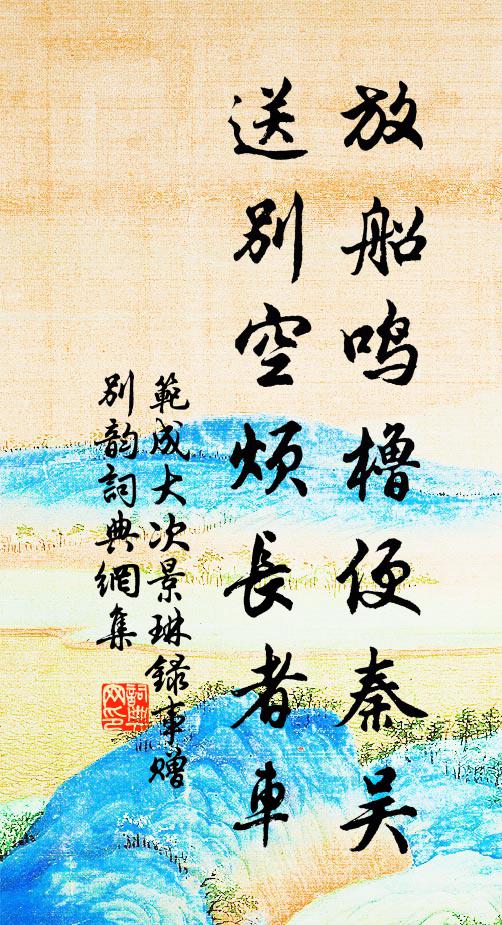 放船鸣橹便秦吴
送别空烦長者車
範成大次景琳録事赠
别韵詞典網集